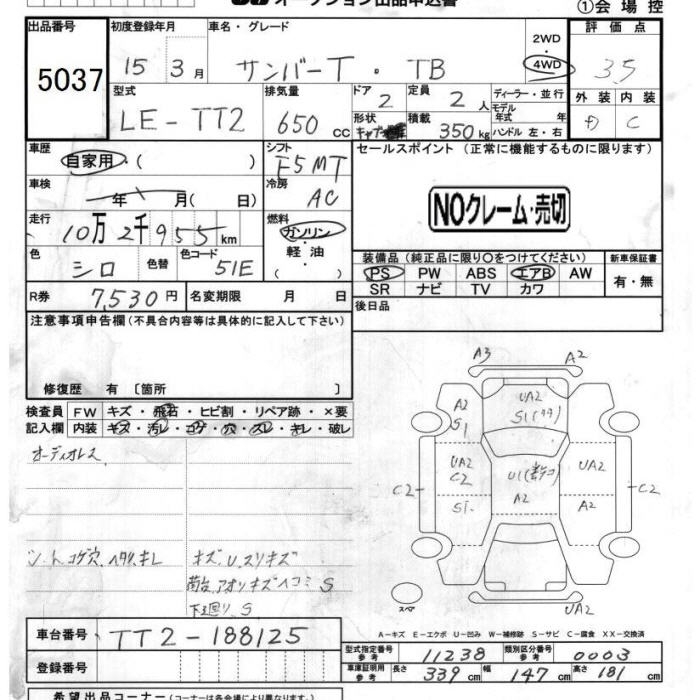 ①会場控
出品番号 初度登録年月 車名・グレード 2WD 評価点
5037 15 3月 サンバーT・TB 4WD 3.5
型式 排気量 ドア 定員 ディーラー・並行 外装 内装
LE-TT2 650cc 2 2人 モデル年式 年 C
形状 積載 350kg ハンドル 左・右
車歴 シフト セールスポイント（正常に機能するものに限ります）
自家用・( ) F5MT
車検 冷房
年 月( 日) AC NOクレーム・売切
走行 燃料
10万2千955km ガソリン
色 色替 色コード 軽油 装備品（純正品に限り○をつけてください） 新車保証書
シロ 51E ( ) PS PW ABS エアB AW 有・無
R券 7,530円 名変期限 月 日 SR ナビ TV カワ
注意事項申告欄（不具合内容等は具体的に記入して下さい） 後日品
修復歴 有〔箇所 〕
検査員 FW キズ・飛石・ヒビ割・リペア跡・×要
記入欄 内装 キズ・汚レ・コゲ・穴・スレ・キレ・破レ
オーディオレス
A3 A2
A2 UA2
S1 S1
UA2 UA2
C2 C2 U1 A2 C2
S1 A2
シートコゲ穴、ヘタリ、キレ キズ、U、スリキズ
荷台、アオリキズヘコミ S
下廻り、S
スペア UA2
A－キズ E－エクボ U－凹み W－補修跡 S－サビ C－腐食 XX－交換済
車台番号 TT2-188125
型式指定番号 参考 11238 類別区分番号 参考 0003
登録番号 車庫証明用 参考 長さ 339cm 幅 147cm 高さ 181cm
希望出品コーナー（コーナー名は各会場により異なります。）